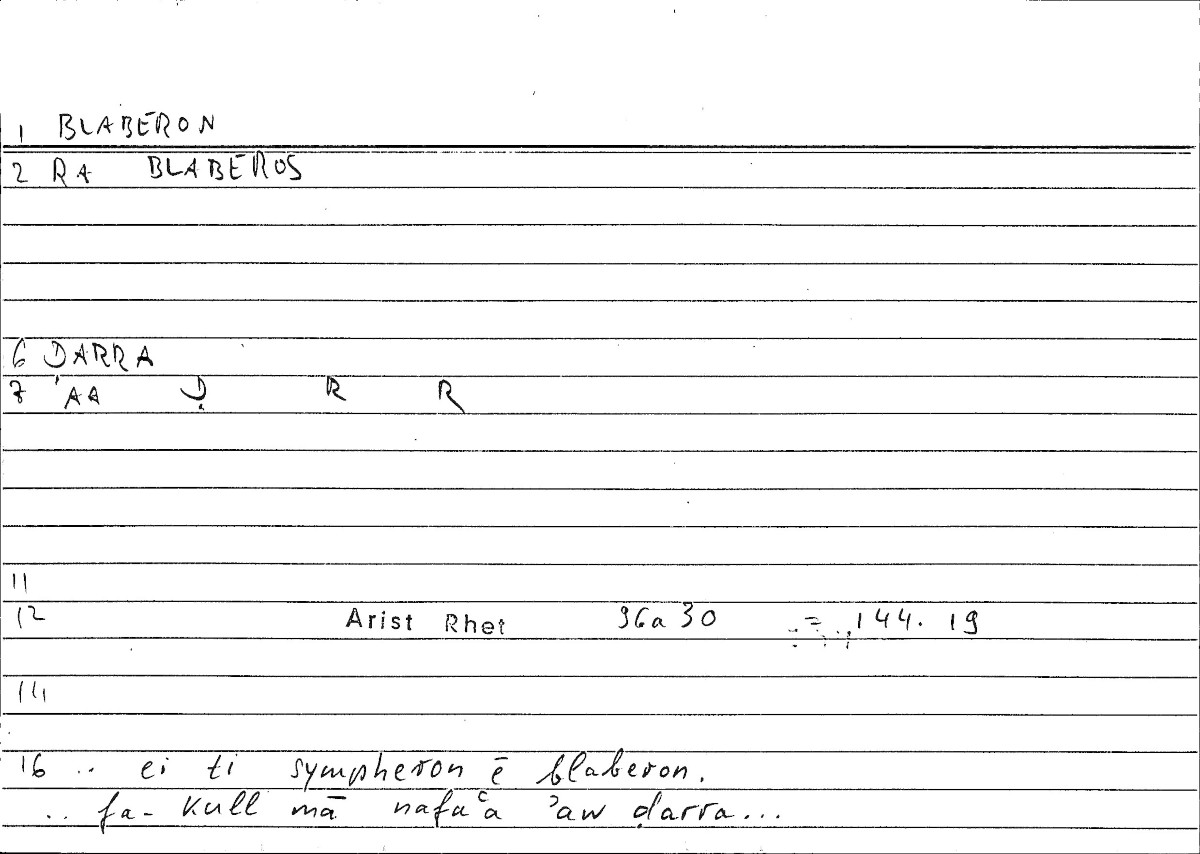 1 BLABERON
2 RA BLABEROS
6 DARRA
7 'AA Ḍ R R
11
12 Arist Rhet 96a30 = 144.19
14
16 .. ei ti sympheron ē blaberon.
.. fa- kull mā nafaʿa ʾaw ḍarra...